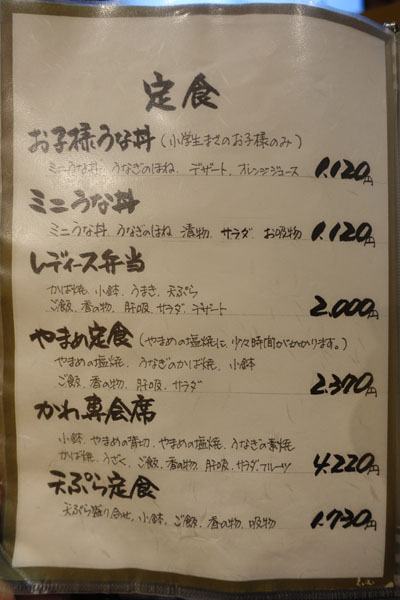 定食
お子様うな丼 (小学生までのお子様のみ)
ミニうな丼、うなぎのほね、デザート、オレンジジュース 1,120円
ミニうな丼
ミニうな丼、うなぎのほね、漬物、サラダ、お吸物 1,120円
レディース弁当
かば焼、小鉢、うまき、天ぷら
ご飯、香の物、肝吸、サラダ、デザート 2,000円
やまめ定食 (やまめの塩焼に、少々時間がかかります。)
やまめの塩焼、うなぎのかば焼、小鉢
ご飯、香の物、肝吸、サラダ 2,370円
かわ専会席
小鉢、やまめの背切、やまめの塩焼、うなぎの素焼
かば焼、うざく、ご飯、香の物、肝吸、サラダ、フルーツ 4,220円
天ぷら定食
天ぷら盛り合せ、小鉢、ご飯、香の物、吸物 1,730円